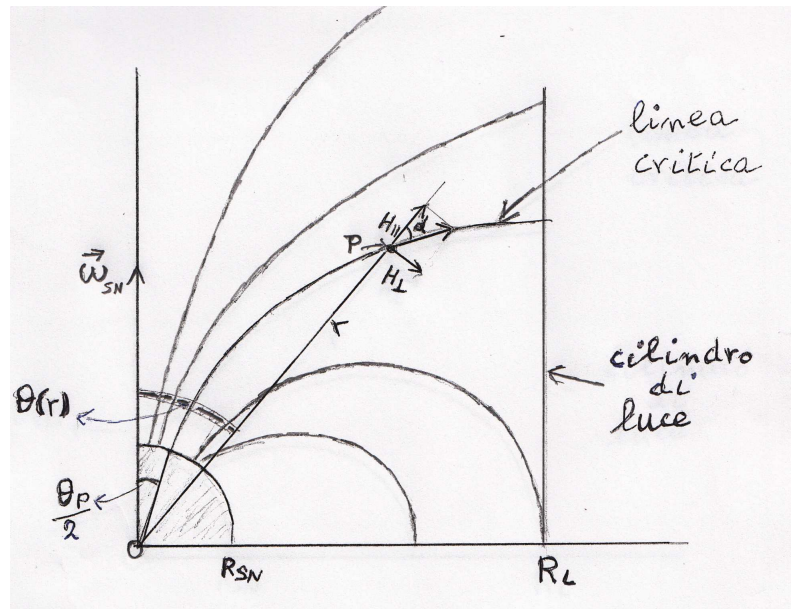 linea
critica
H∥
α
P
H⊥
ω⃗SN
r
cilindro
di
luce
θ(r)
θP
2
O
RSN
RL